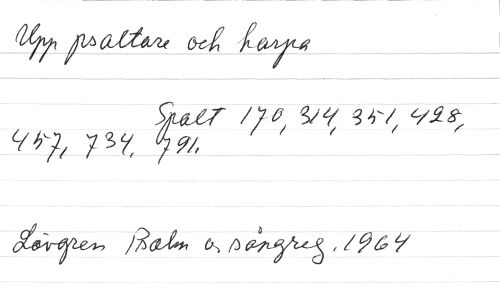 Upp psaltare och harpa
Spalt 170, 314, 351, 428,
457, 734, 791.
Lövgren Psalm o sångreg. 1964